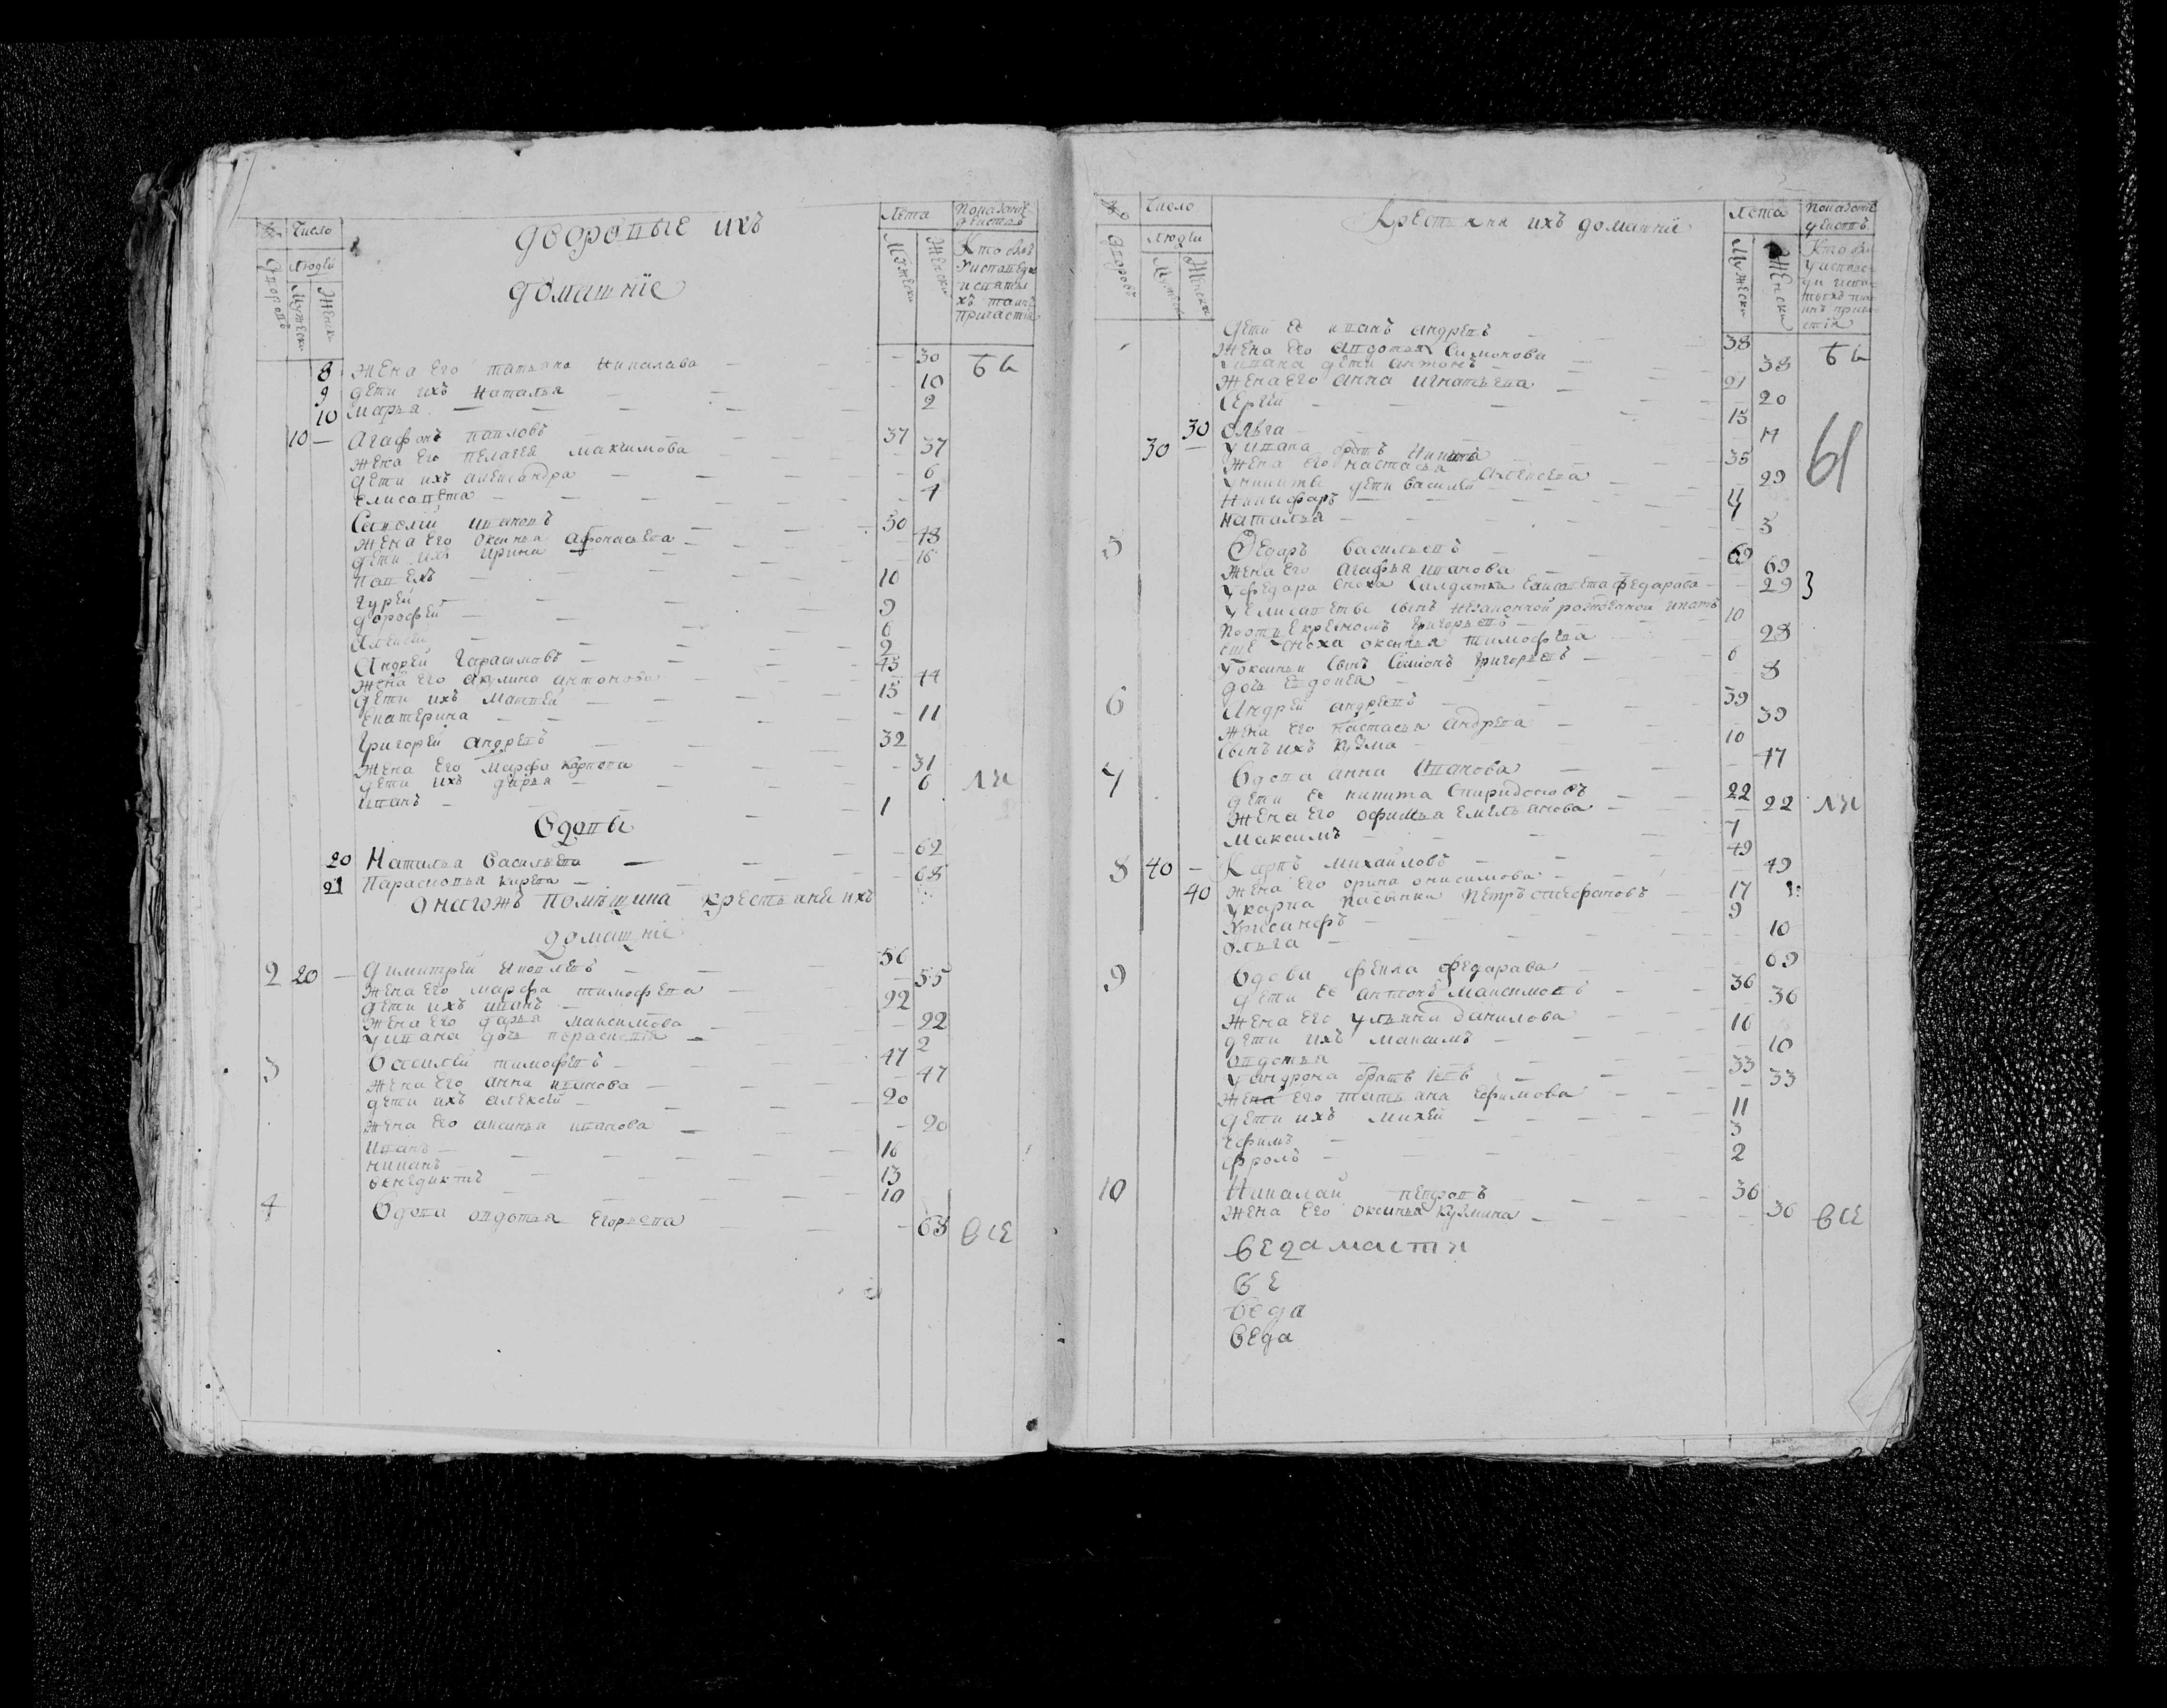 № Число
Лета Показание действа
Людей
дворовые ихъ
домашніе
дворовъ Мужески Женски
Мужески Женски
Кто былъ
8 Жена его татьяна Николаева — 30 бы
9 дети ихъ Наталья — 10
10 Марья — 2
10 — Агафонъ павловъ — 37
Жена его пелагея максимова — 37
дети ихъ александра — 6
Елисавета — 4
Савелий ивановъ — 50
Жена его оксинья афонасьева — 48
дети ихъ ирина — 16
павелъ — 10
гурей — 9
дорофей — 6
Алексей — 2
Андрей Герасимовъ — 45
Жена его акулина антонова — 44
дети ихъ матвей — 15
Екатерина — 11
Григорей андревъ — 32
Жена его марфа карпова — 31
дети ихъ дарья — 6 ли
иванъ — 1
Вдовы
20 Наталья васильева — 62
21 Парасковья карпова — 68
онагожъ помещика крестьяне ихъ
домашніе
2 20 — Димитрей Яковлевъ — 56
Жена его марфа тимофева — 55
дети ихъ иванъ — 22
Жена его дарья максимова — 22
у ивана дочь парасковья — 2
3 Василей тимофевъ — 47
Жена его анна иванова — 47
дети ихъ алексей — 20
Жена его аксинья иванова — 20
Иванъ — 16
никанъ — 13
венедиктъ — 10
4 Вдова авдотья Егорьева — 68 все
№ Число
Крестьяня ихъ домашніи
Лета Показание действъ
Людей
дворовъ Мужески Женски
Мужески Женски
дети ее иванъ андревъ — 38 бы
Жена его авдотья Симонова — 38
У ивана дети антонъ — 21
Жена его анна игнатьева — 20
Сергей — 15
30 Ольга —
61
30 — У ивана братъ Никита — 35
Жена его настасья Алексеева — 29
У никиты дети василей — 4
Никифоръ —
Наталья — 3
5 Федаръ васильевъ — 69
Жена его агафья иванова — 69
У федара сноха Салдатка Елисавета федарава — 29
У Елисаветы сынъ незаконной рожденной игнатъ — 10
еще сноха оксинья тимофева — 28
У оксиньи сынъ Семионъ григорьевъ — 6
дочь Евдокея — 8
6 Андрей андревъ — 39
Жена его настасья андрева — 39
Сынъ ихъ кузма — 10
7 Вдова анна Иванова — 47
дети ее никита Спиридоновъ — 22
Жена его офимья Емельянова — 22 ли
Максимъ — 7
8 40 — Карпъ михайловъ — 49
40 Жена его орина онисимова — 49
У карпа пасынки Петръ стефановъ — 17
Хрисанфъ — 9
ольга — 10
9 Вдова фекла федарава — 69
дети ее антонъ Максимовъ — 36
Жена его ульяна данилова — 36
дети ихъ максимъ — 16
авдотья — 10
братъ — 33
Жена его татьяна Ефимова — 33
дети ихъ михей — 11
Ефимъ — 3
фролъ — 2
10 Николай петровъ — 36
Жена его оксинья кузмина — 36 все
ведамасти
ве
веда
веда